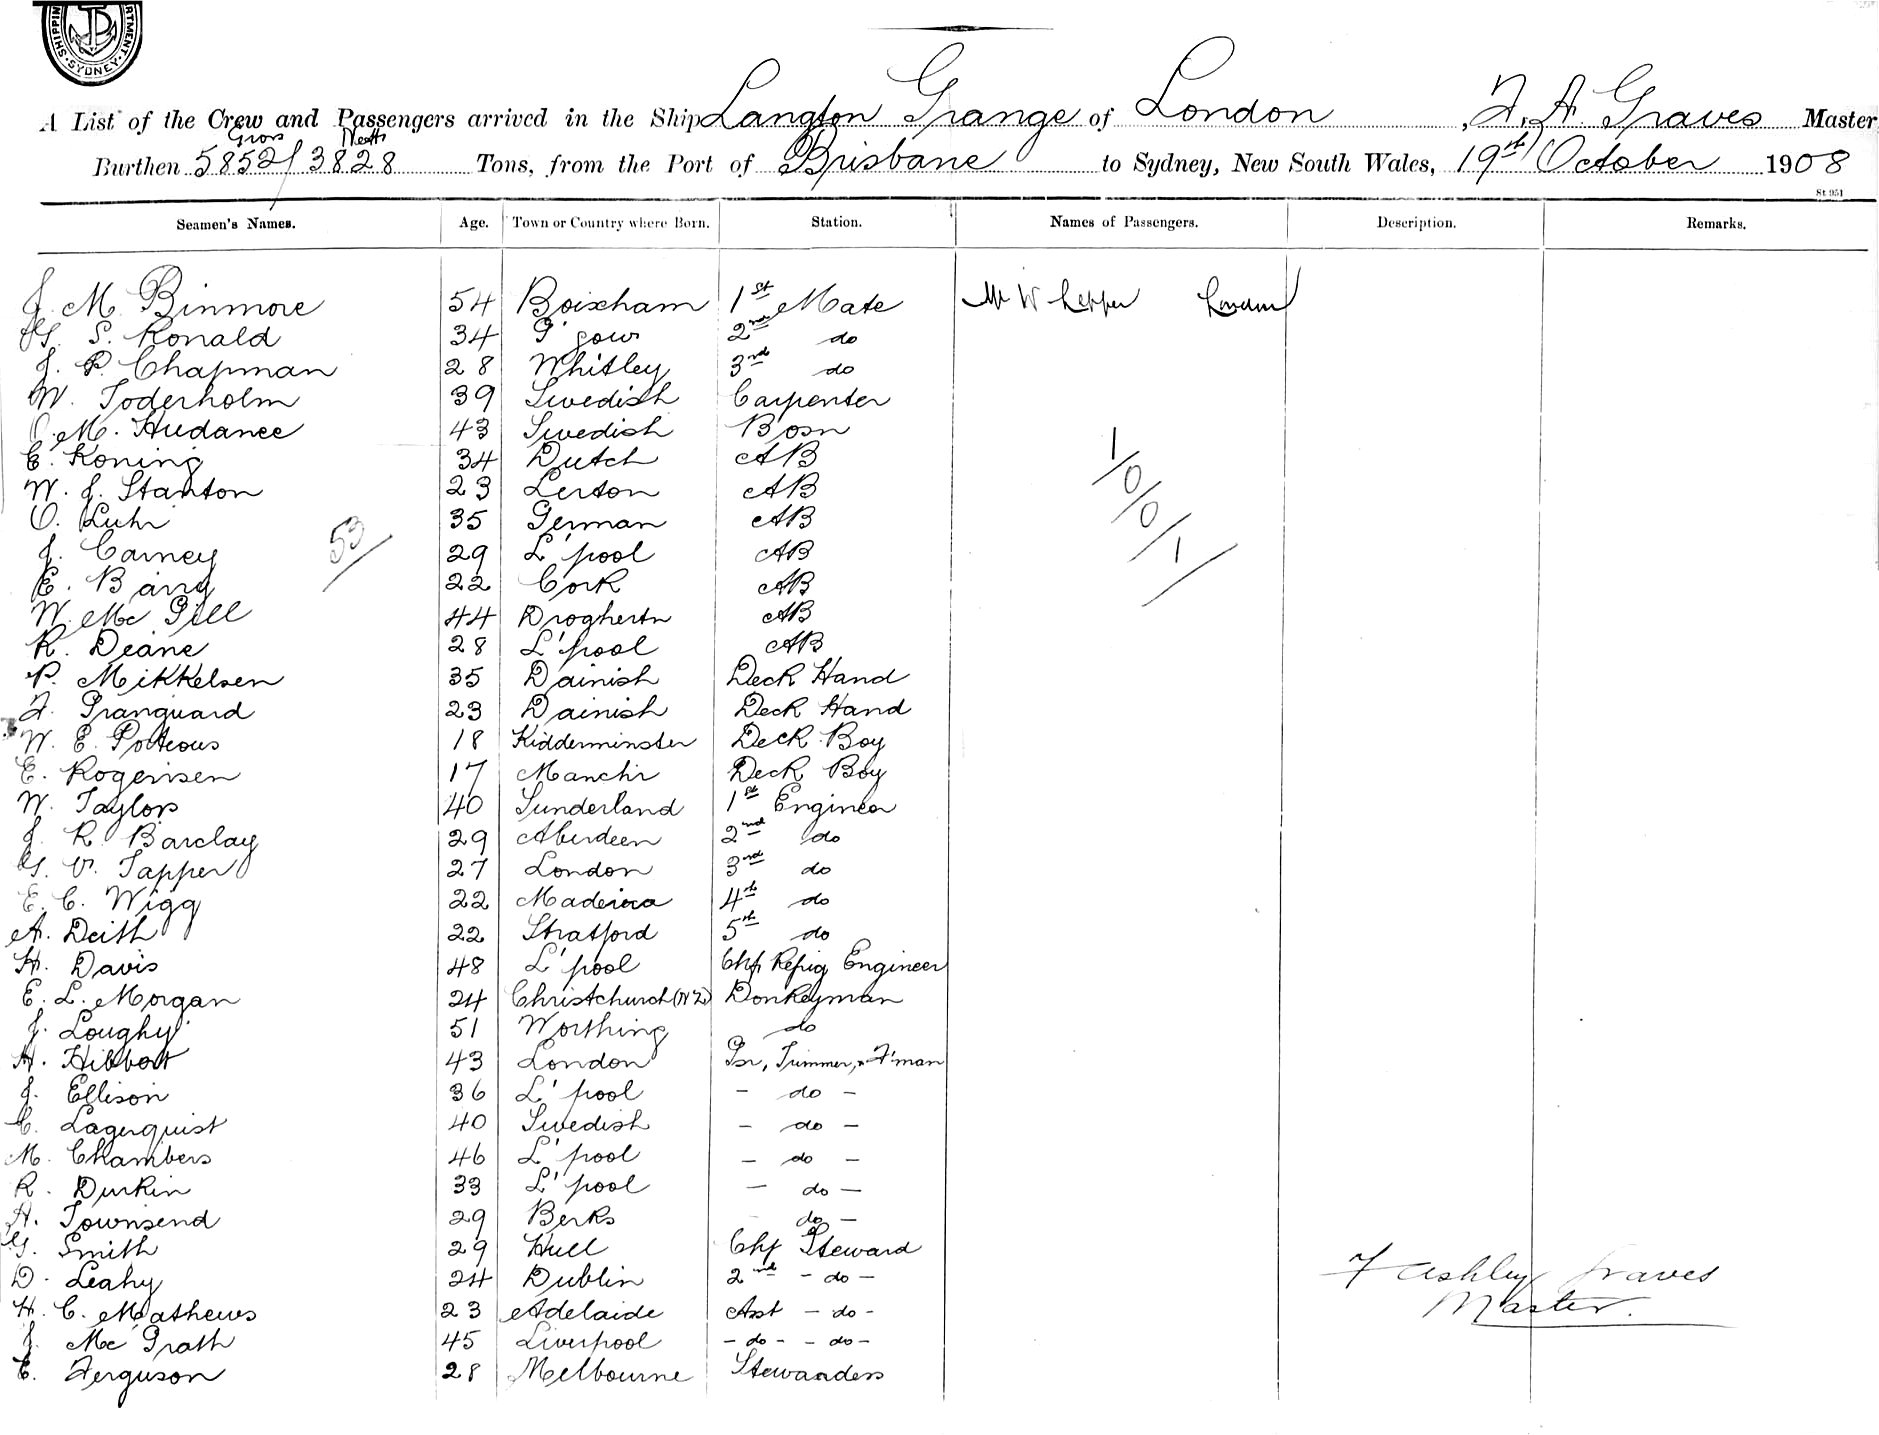 SHIPPING DEPARTMENT · SYDNEY ·
A List of the Crew and Passengers arrived in the Ship Langton Grange of London, F. A. Graves Master
Gross Nett
Burthen 5852/3828 Tons, from the Port of Brisbane to Sydney, New South Wales, 19th October 1908
St 951
Seamen's Names. Age. Town or Country where Born. Station. Names of Passengers. Description. Remarks.
J. M. Binmore 54 Boixham 1st Mate Mr W Lepper London
G. S. Ronald 34 G'gow 2nd do
J. P. Chapman 28 Whitley 3rd do
W. Toderholm 39 Swedish Carpenter
O. M. Hudance 43 Swedish Bosn
E. Koning 34 Dutch AB
W. J. Stanton 23 Lerton AB
O. Luhr 35 German AB
J. Carney 29 L'pool AB
E. Barry 22 Cork AB
W. Mc Gill 44 Drogheda AB
R. Deane 28 L'pool AB
P. Mikkelsen 35 Dainish Deck Hand
F. Granguard 23 Dainish Deck Hand
W. E. Porteous 18 Kidderminster Deck Boy
E. Rogensen 17 Manchr Deck Boy
W. Taylor 40 Sunderland 1st Engineer
J. R. Barclay 29 Aberdeen 2nd do
G. V. Tapper 27 London 3rd do
E. C. Wigg 22 Madeira 4th do
A. Deith 22 Stratford 5th do
H. Davis 48 L'pool Chf Refrig Engineer
E. L. Morgan 24 Christchurch (NZ) Donkeyman
J. Loughy 51 Worthing do
H. Hibbert 43 London Gr, Trimmer, & F'man
J. Ellison 36 L'pool - do -
C. Lagerquist 40 Swedish - do -
M. Chambers 46 L'pool - do -
R. Durkin 33 L'pool - do -
A. Townsend 29 Berks - do -
G. Smith 29 Hull Chf Steward
D. Leahy 24 Dublin 2nd - do -
H. C. Mathews 23 Adelaide Asst - do -
J. Mc Grath 45 Liverpool - do - - do -
E. Ferguson 28 Melbourne Stewardess
53/
1/0/0/1/
F Ashley Graves
Master.